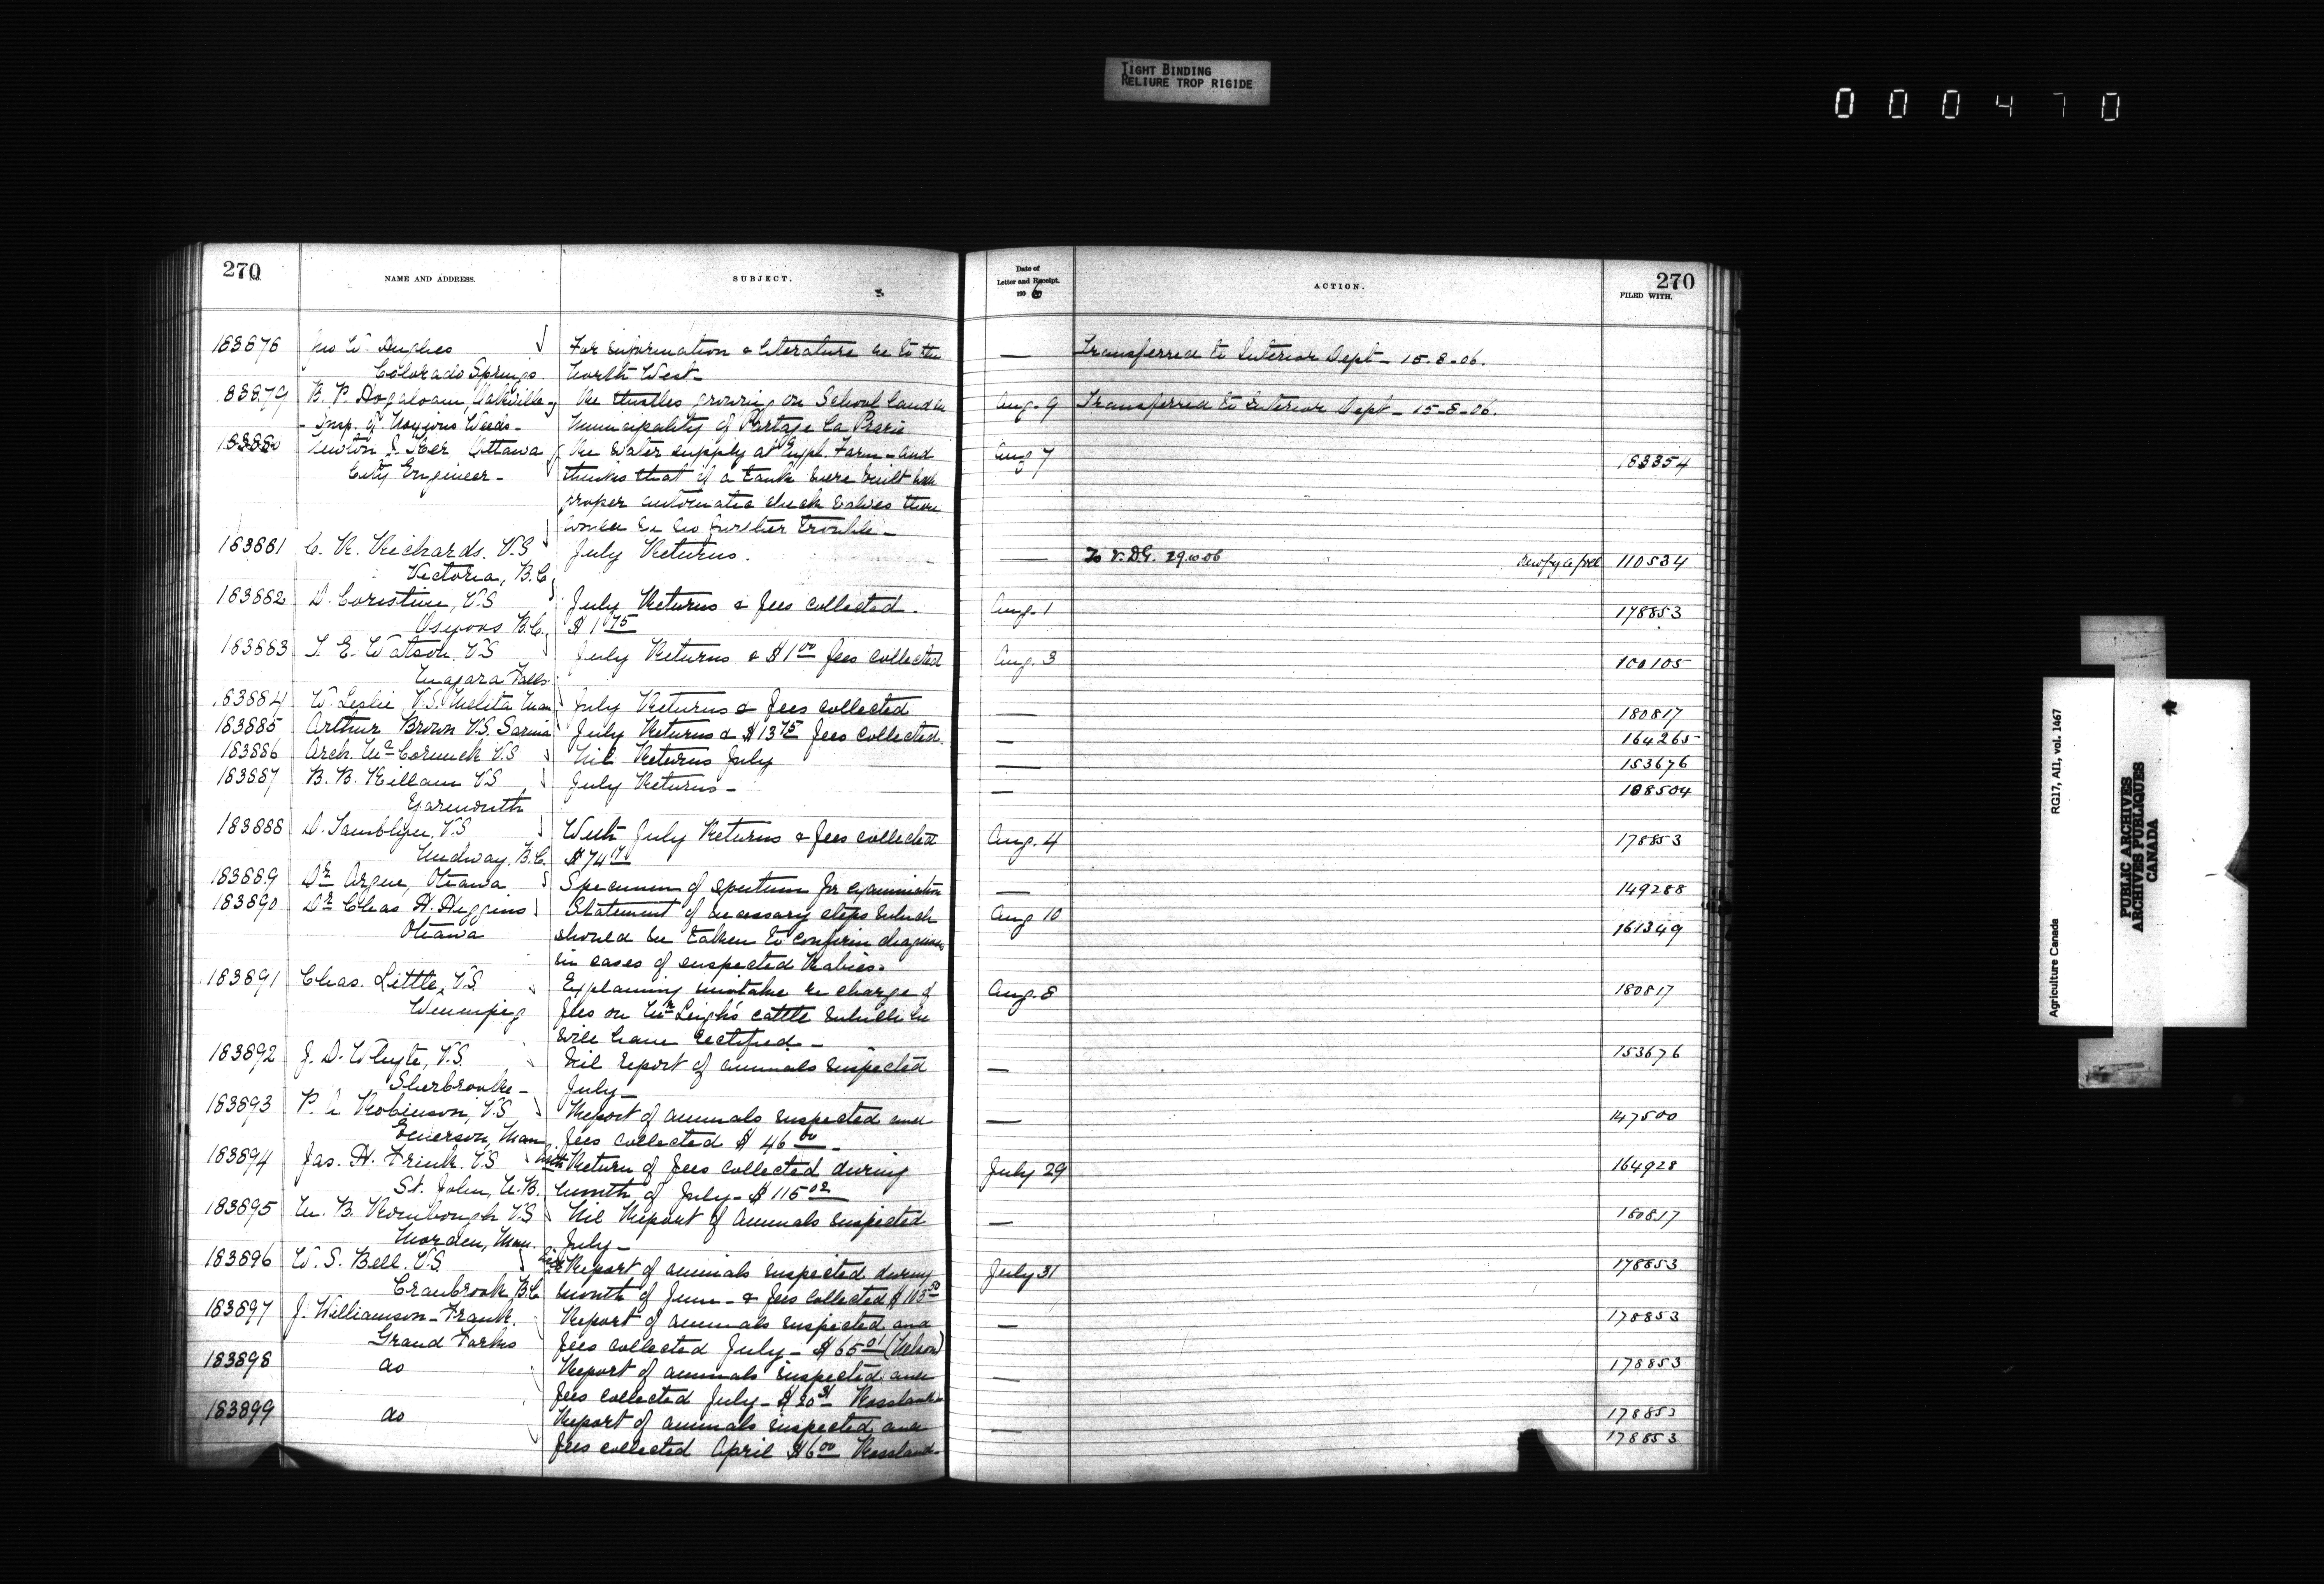 TIGHT BINDING
RELIURE TROP RIGIDE
000470
270
NAME AND ADDRESS.
SUBJECT.
Date of
Letter and Receipt.
1906
ACTION.
270
FILED WITH.
183878 Hughes For information & literature re to the — Transferred to Interior Dept - 15-8-06.
Colorado Springs North West -
83879 B. P. Oakville Re thistles growing on School Land in Aug. 9 Transferred to Interior Dept - 15-8-06.
Insp. of Noxious Weeds - Municipality of Portage La Prarie
183880 Newton J. Ker Ottawa Re water supply at Expl. Farm - and Aug 7 183354
City Engineer - thinks that if a tank were built with
proper automatic check valves there
would be no further trouble -
183881 C. R. Richards. V.S July Returns. — To V.D.G. 29.10.06 110534
Victoria, B.C.
183882 D. Coristine, V.S July Returns & fees collected. Aug. 1 178853
Osoyoos B.C. $1 75
183883 T. E. Watson. V.S July Returns & $1 00 fees collected Aug. 3 100105
Niagara Falls
183884 W. Leslie, V.S. Melita Man July Returns & fees collected — 180817
183885 Arthur Brown V.S. Sarnia July Returns & $13 75 fees collected. — 164265
183886 Arch. McCormick V.S Nil Returns July — 153676
183887 B. B. Killam VS July Returns - — 108504
Yarmouth
183888 D. Tamblyn, V.S With July Returns & fees collected Aug. 4 178853
Midway, B.C. $74
183889 Dr Argue, Ottawa Specimen of sputum for examination — 149288
183890 Dr Chas H. Higgins Statement of necessary steps which Aug 10 161349
Ottawa should be taken to confirm diagnosis
in cases of suspected Rabies.
183891 Chas. Little, V.S. Explaining mistake re charge of Aug. 8 180817
Winnipeg fees on Mr Leigh's cattle which he
will have rectified -
183892 J. D. Whyte, V.S. Nil report of animals inspected — 153676
Sherbrooke - July -
183893 P. Robinson, V.S Report of animals inspected and — 147500
Emerson, Man fees collected $46 00 -
183894 Jas. H. Frink. V.S With Return of fees collected during July 29 164928
St. John, N.B. month of July - $115 02
183895 M. B. V.S Nil Report of animals inspected — 180817
Morden, Man. July -
183896 W. S. Bell. V.S. Report of animals inspected during July 31 178853
Cranbrook B.C month of June - & fees collected
183897 J. Williamson - Frank. Report of animals inspected and — 178853
Grand Forks fees collected July - $65 01 (Nelson)
183898 do Report of animals inspected and — 178853
fees collected July - Rossland
183899 do Report of animals inspected and — 178853
fees collected April $6 00 Rossland - 178853
Agriculture Canada RG17, AII, vol. 1467
PUBLIC ARCHIVES
ARCHIVES PUBLIQUES
CANADA